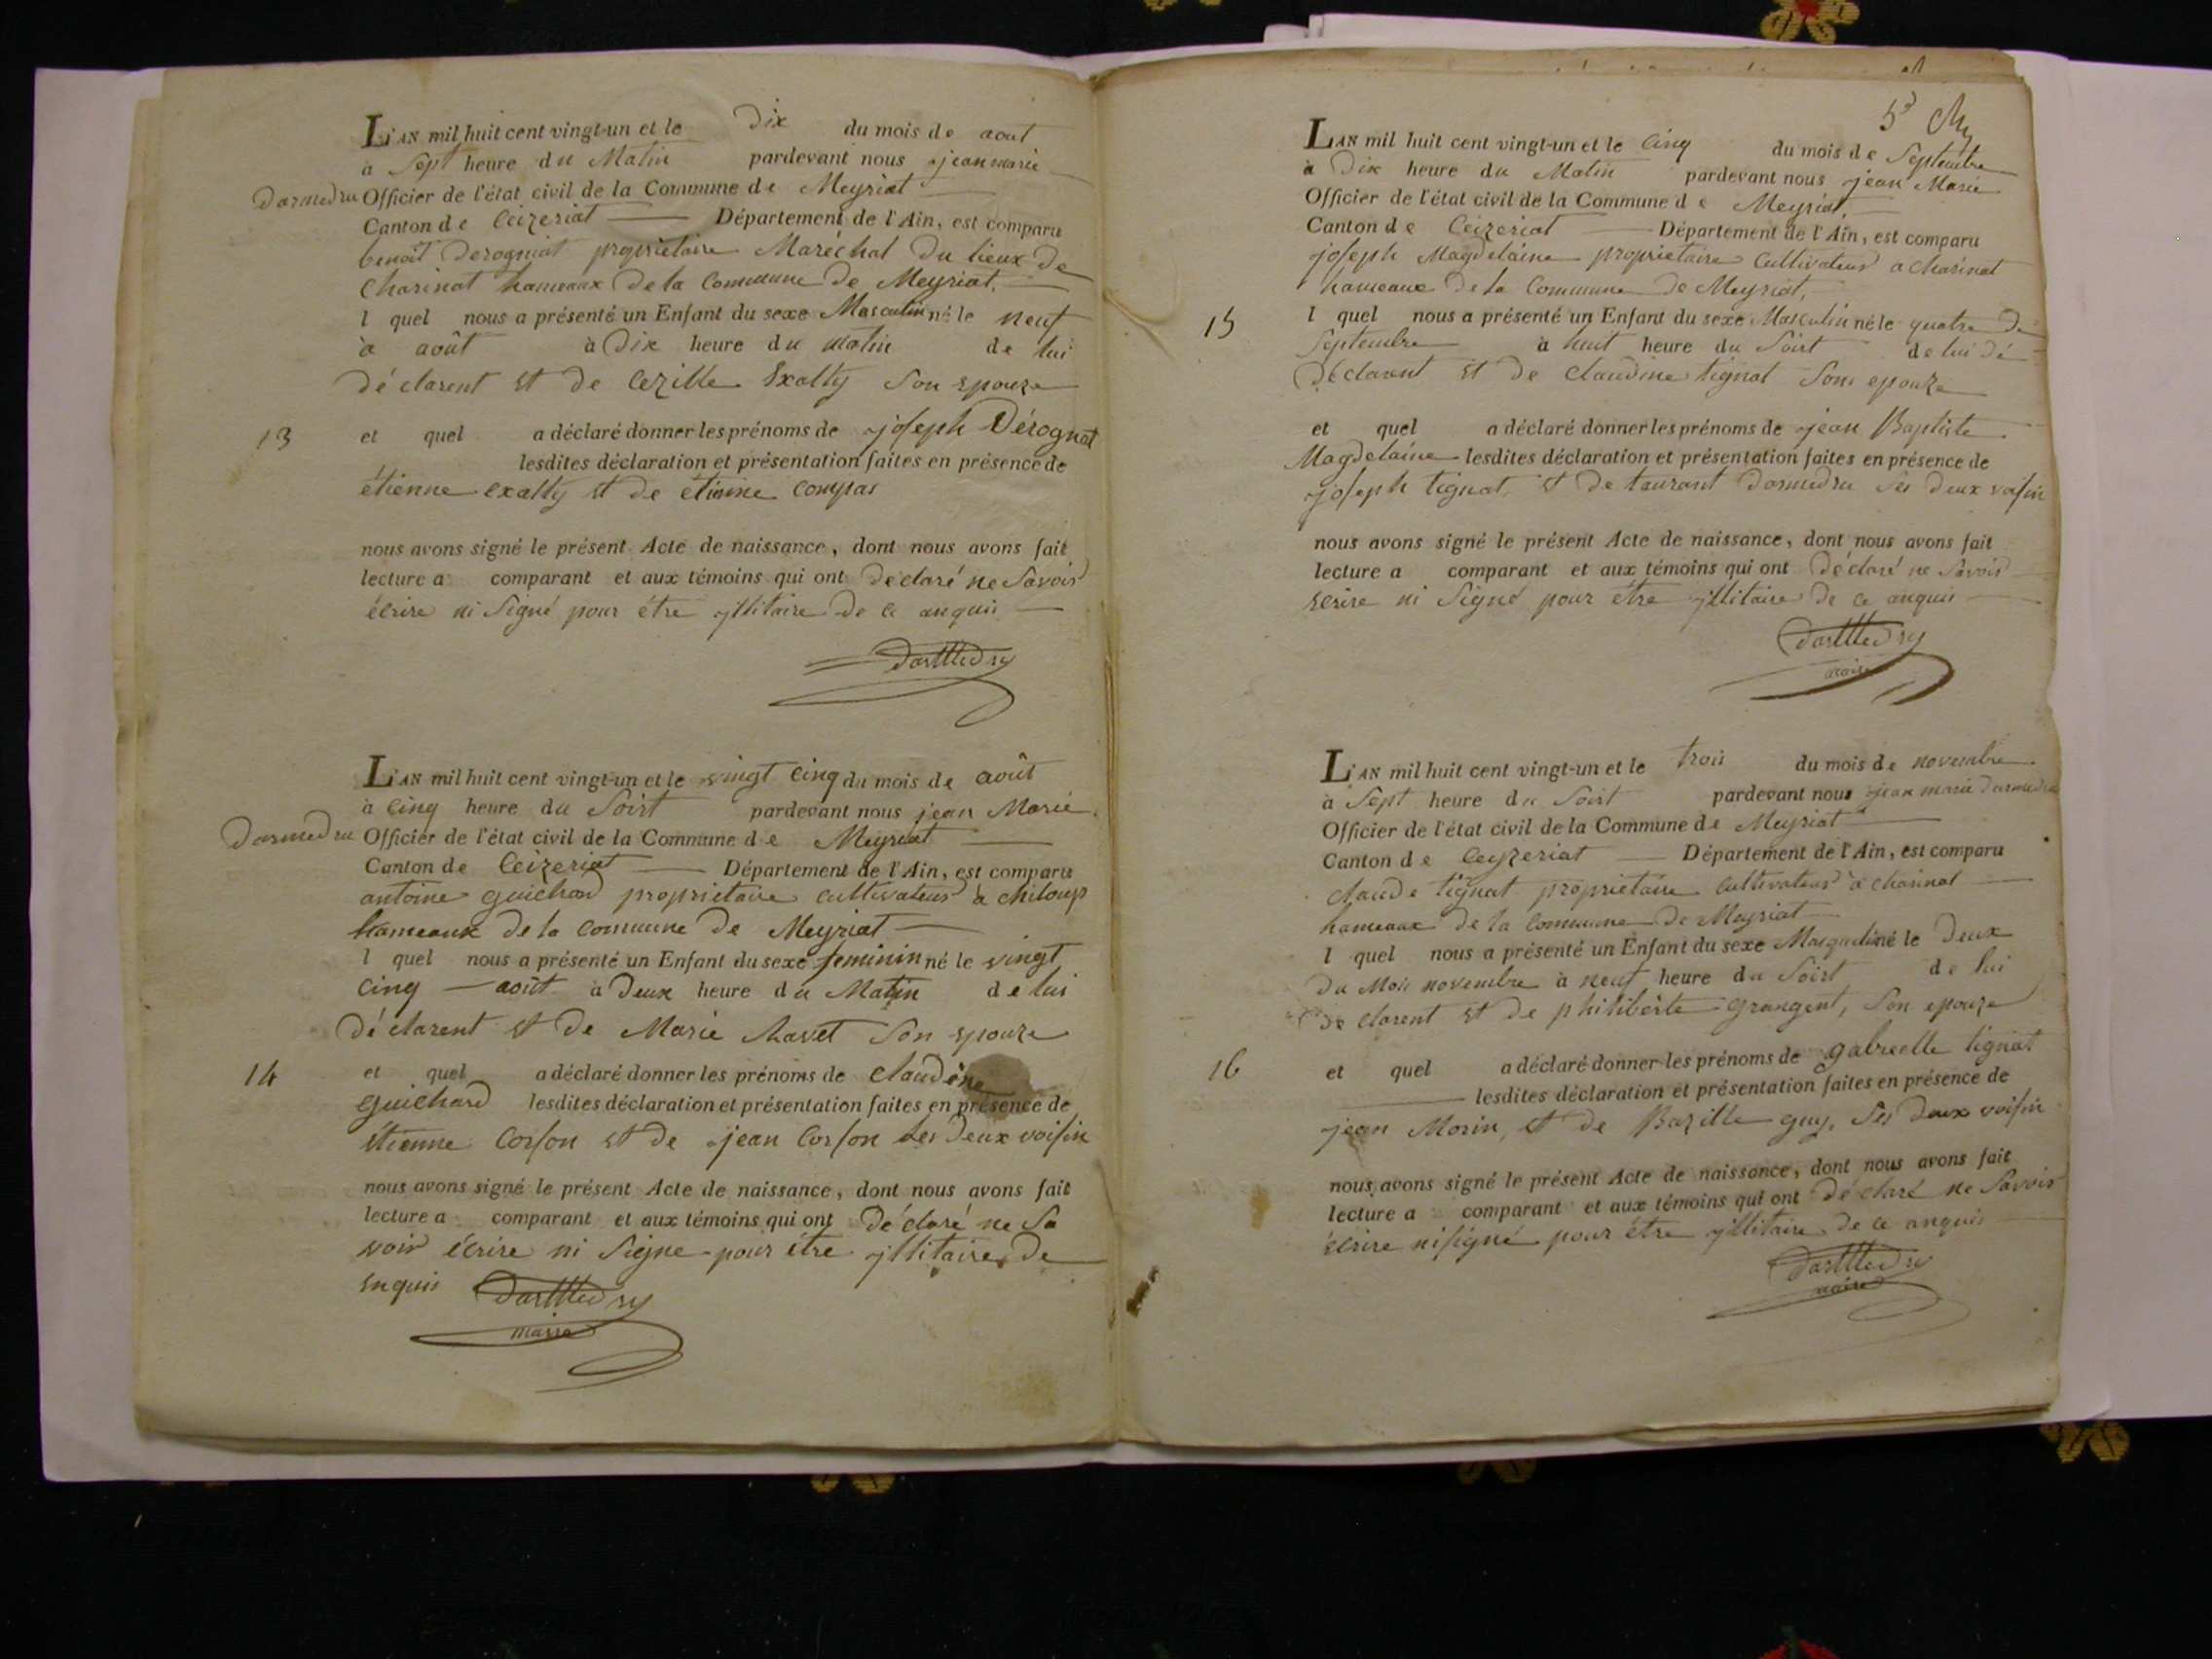 L'AN mil huit cent vingt-un et le Dix du mois de aout
à Sept heure du Matin pardevant nous jean marie
Darmedru Officier de l'état civil de la Commune de Meyriat
Canton de Ceizeriat Département de l'Ain, est comparu
benoit Derogniat proprietaire Maréchal Du lieux De
Charinat hameaux De la Commune De Meyriat,
l quel nous a présenté un Enfant du sexe Masculin né le neuf
à août à Dix heure du Matin de lui
déclarent et de Cezille Exalty Son epouze
13 et quel a déclaré donner les prénoms de joseph Dérognat
lesdites déclaration et présentation faites en présence de
étienne exalty et de étienne compas
nous avons signé le présent Acte de naissance, dont nous avons fait
lecture a comparant et aux témoins qui ont Déclaré ne Savoir
écrire ni Signé pour étre jllitaire De ce anquis
Darmedru
L'AN mil huit cent vingt-un et le vingt cinq du mois de août
à cinq heure du Soirt pardevant nous jean Marie
Darmedru Officier de l'état civil de la Commune de Meyriat
Canton de Ceizeriat Département de l'Ain, est comparu
antoine guichard proprietaire cultivateur à chiloup
hameaux De la commune De Meyriat
l quel nous a présenté un Enfant du sexe feminin né le vingt
cinq août à Deux heure du Matin de lui
déclarent et De Marie Ravet Son epouze
14 et quel a déclaré donner les prénoms de Claudine
guichard lesdites déclaration et présentation faites en présence de
étienne Corson et de jean Corson Ses Deux voisin
nous avons signé le présent Acte de naissance, dont nous avons fait
lecture a comparant et aux témoins qui ont Déclaré ne Sa
voir écrire ni Signe pour étre jllitaire De
enquis Darmedru
maire
5
L'AN mil huit cent vingt-un et le Cinq du mois de Septembre
à Dix heure du Matin pardevant nous jean Marie
Officier de l'état civil de la Commune de Meyriat,
Canton de Ceizeriat Département de l'Ain, est comparu
joseph Magdelaine proprietaire Cultivateur a Charinat
hameaux De la Commune De Meyriat,
15 l quel nous a présenté un Enfant du sexe Masculin né le quatre De
Septembre à huit heure du Soirt de lui dé
Déclarent et De Claudine tignat Son epouze
et quel a déclaré donner les prénoms de jean Baptiste
Magdelaine lesdites déclaration et présentation faites en présence de
joseph tignat, et De laurant Darmedru Ses Deux voisin
nous avons signé le présent Acte de naissance, dont nous avons fait
lecture a comparant et aux témoins qui ont Déclaré ne Savoir
ecrire ni Signé pour étre jllitaire de ce anquis
Darmedru
maire
L'AN mil huit cent vingt-un et le trois du mois de novembre
à Sept heure du Soirt pardevant nous jean marie Darmedru
Officier de l'état civil de la Commune de Meyriat
Canton de Ceyzeriat Département de l'Ain, est comparu
claude tignat proprietaire cultivateur à charinat
hameaux de la commune De Meyriat
l quel nous a présenté un Enfant du sexe Masqueliné le Deux
Du Mois novembre à neuf heure du Soirt de lui
De clarent et De philiberte grangent, Son epouze
16 et quel a déclaré donner les prénoms de gabrielle tignat
lesdites déclaration et présentation faites en présence de
jean Morin, et De Bazille guy, Ses Deux voisin
nous avons signé le présent Acte de naissance, dont nous avons fait
lecture a comparant et aux témoins qui ont Déclaré ne Savoir
écrire ni signé pour étre jllitaire De ce anquis
Darmedru
maire